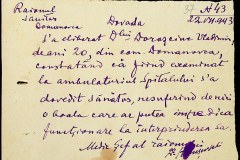 Raionul
Sanitar
Domanovca
37
A 43
22.VII.943
Dovada
S'a eliberat Dlui Doroşcine Vladimir,
de ani 20, din com. Domanovca,
constatând că fiind examinat
la ambulatoriul spitalului s'a
dovedit sănătos, nesuferind de nici
o boală care ar putea împiedica
funcţionare la întreprinderea sa.
Medic Şef al raionului